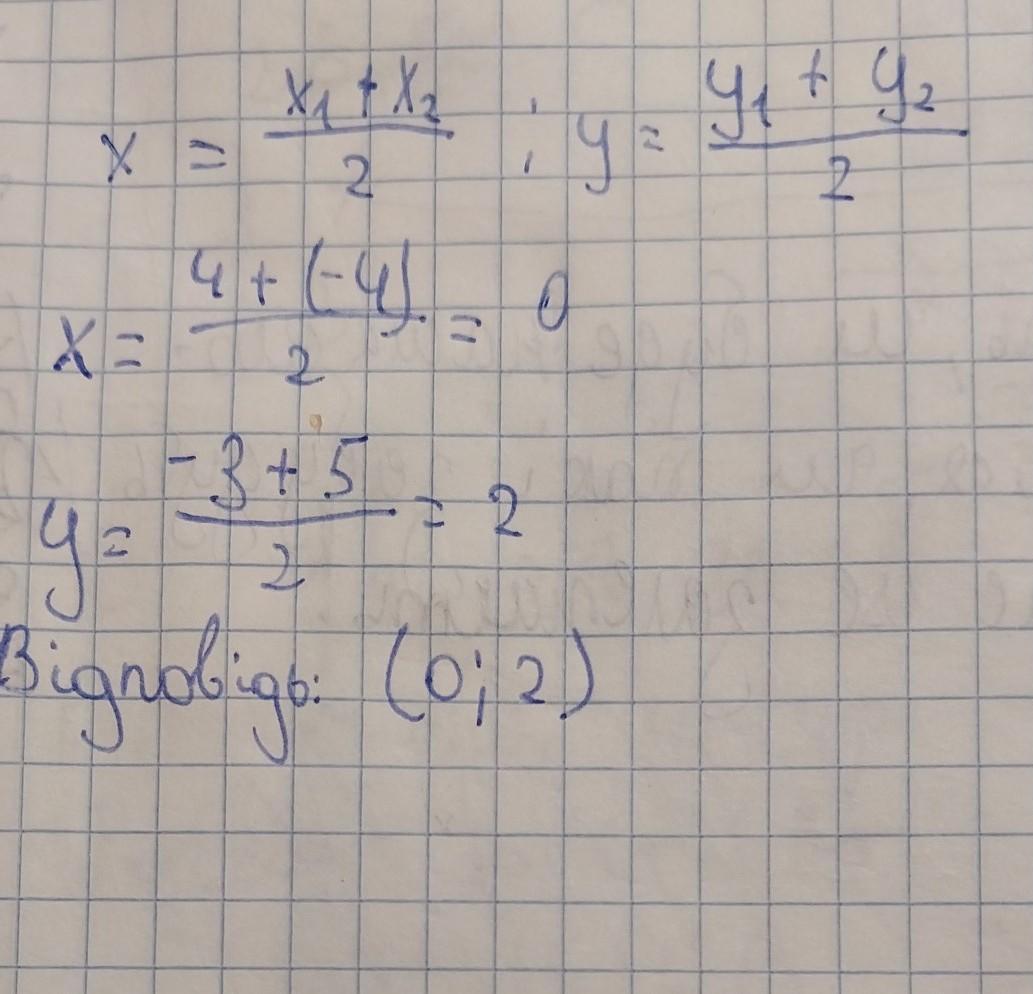 x = (x₁ + x₂)/2 ; y = (y₁ + y₂)/2
x = (4 + (-4))/2 = 0
y = (-3 + 5)/2 = 2
Відповідь: (0; 2)